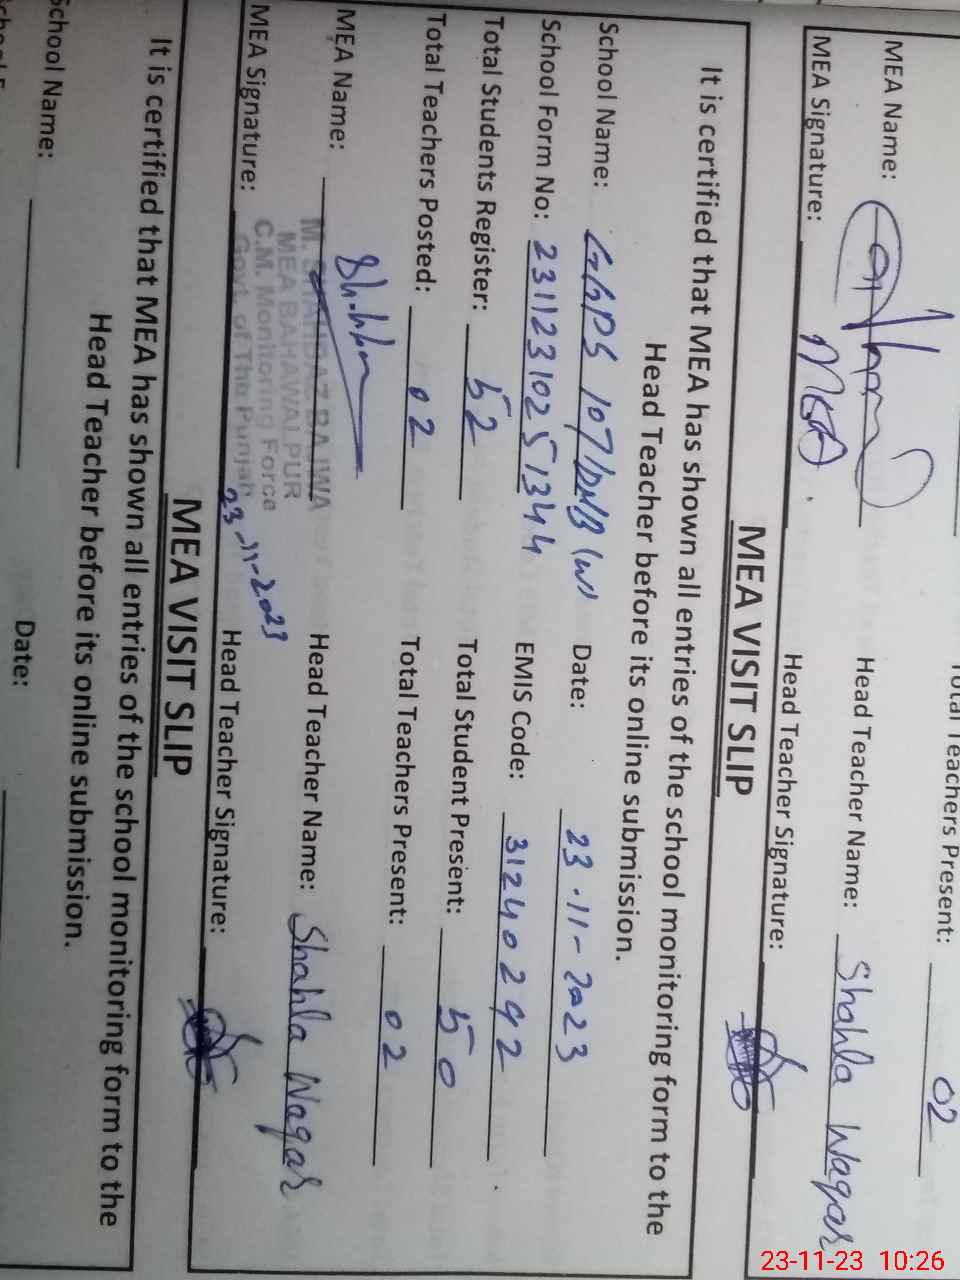 Total Teachers Present: 02
MEA Name: Head Teacher Name: Shahla Waqar
MEA Signature: MEA Head Teacher Signature:
MEA VISIT SLIP
It is certified that MEA has shown all entries of the school monitoring form to the
Head Teacher before its online submission.
School Name: GGPS 107/DNB (W) Date: 23-11-2023
School Form No: 23112310251344 EMIS Code: 31240292
Total Students Register: 52 Total Student Present: 50
Total Teachers Posted: 02 Total Teachers Present: 02
MEA Name: M. SHAHBAZ BAJWA Head Teacher Name: Shahla Waqar
MEA BAHAWALPUR
C.M. Monitoring Force
MEA Signature: Govt. of The Punjab 23-11-2023 Head Teacher Signature:
MEA VISIT SLIP
It is certified that MEA has shown all entries of the school monitoring form to the
Head Teacher before its online submission.
School Name: Date:
23-11-23 10:26